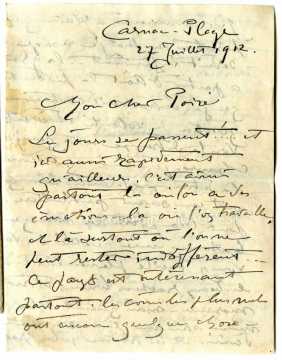 Carnac-Plage
27 Juillet 1912.
Mon cher Poiré
Les jours se passent!.. et
ici aussi rapidement
qu'ailleurs. C'est ainsi
partout là où l'on a des
émotions là où l'on travaille,
et là surtout où l'on ne
peut rester indifférent...
Ce pays est intéressant
partout. les coins les plus
ont encore quelque chose